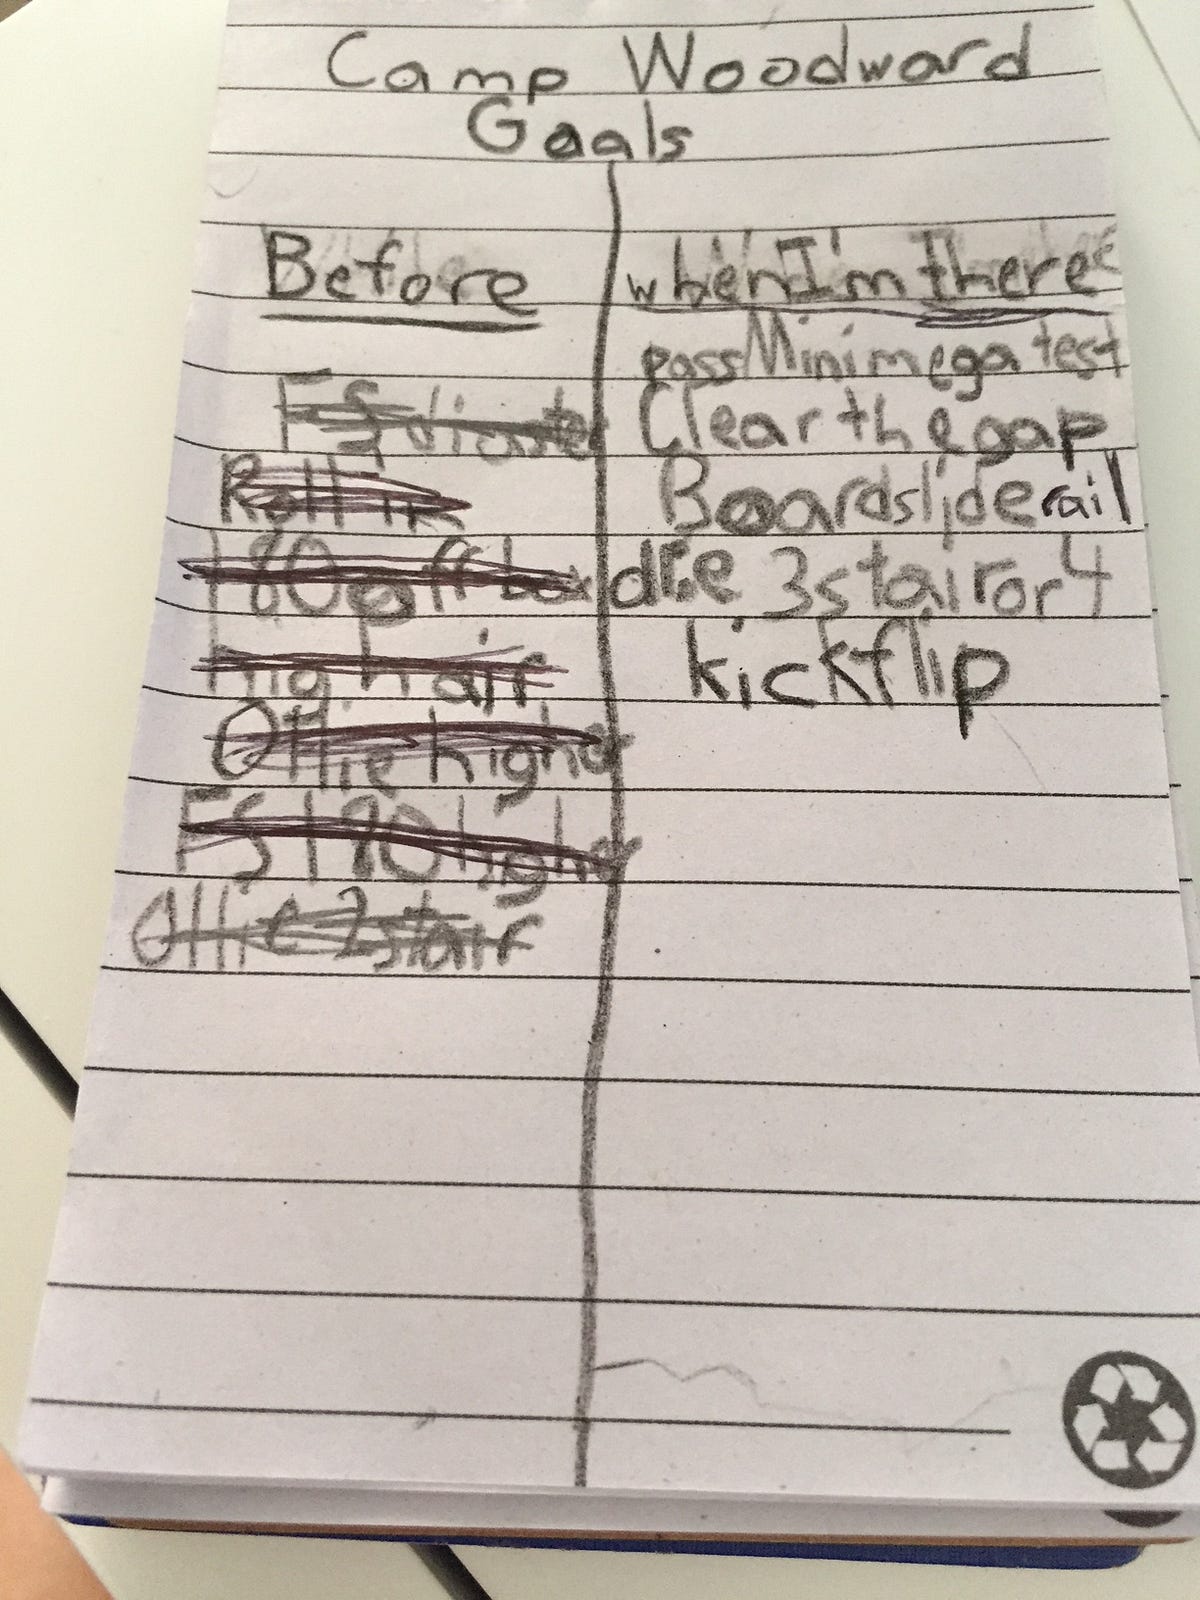 Camp Woodward
Goals
Before
Fs disaster
Roll in
180 off box
high air
Ollie higher
Fs 180 higher
Ollie 2 stair
when I'm there
pass Mini mega test
Clear the gap
Boardslide rail
3 stair or 4
kickflip